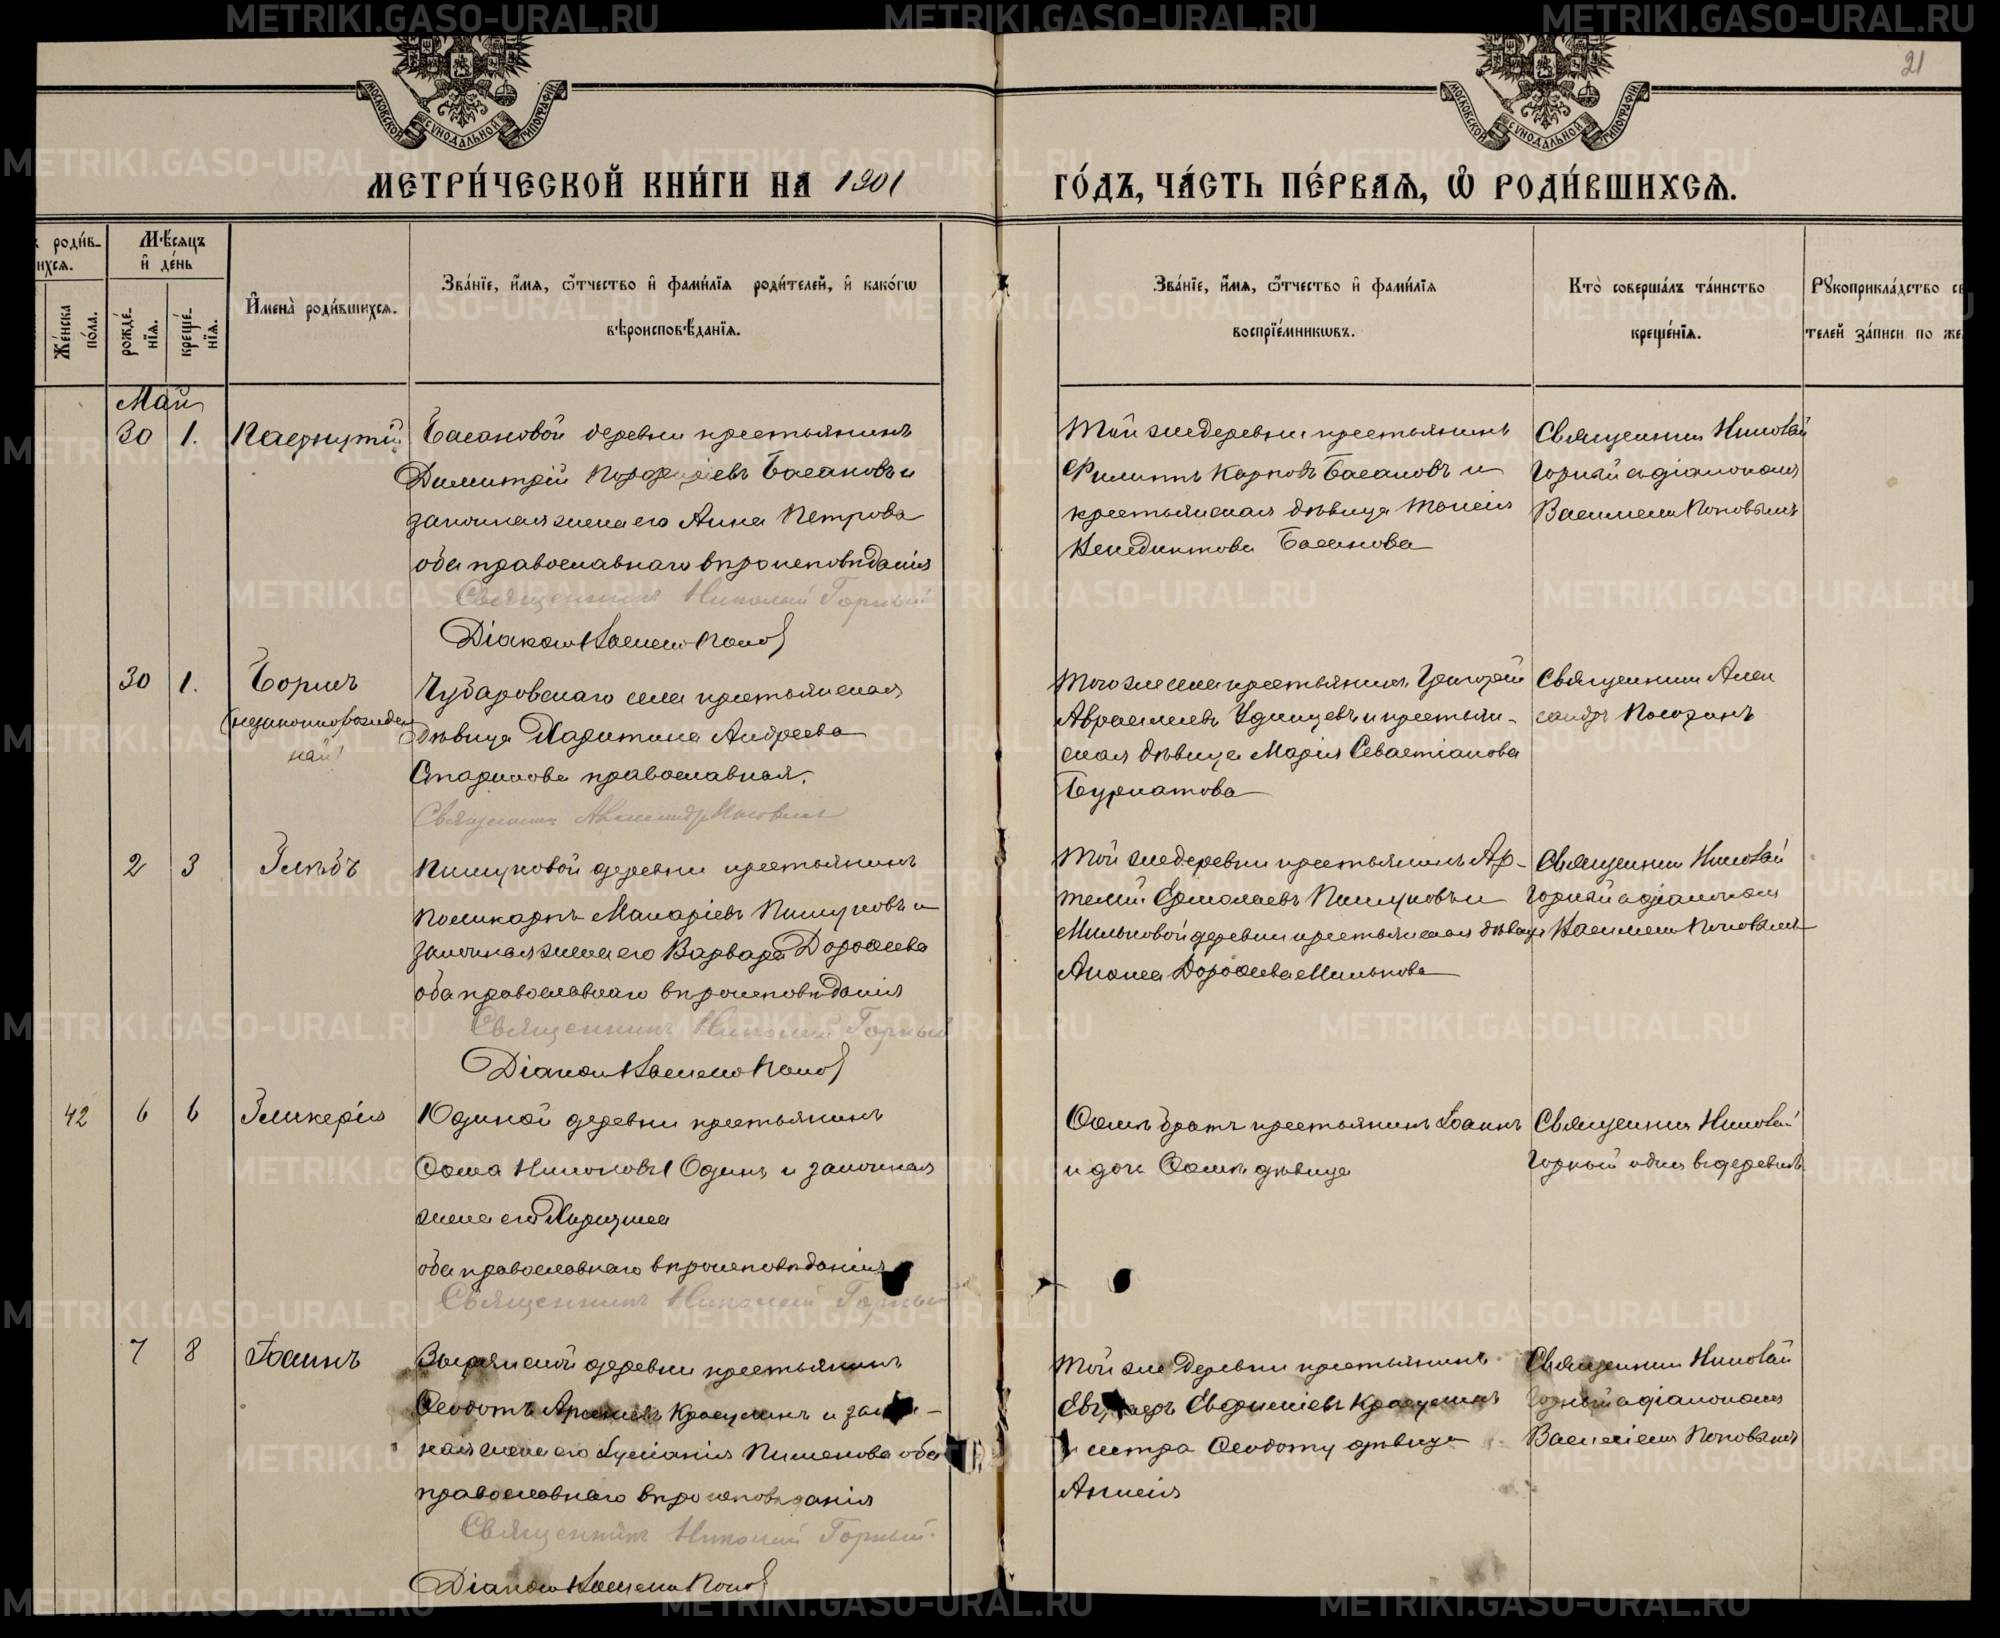 21
МОСКОВСКОЙ СѴНОДАЛЬНОЙ ТИПОГРАФІИ
МОСКОВСКОЙ СѴНОДАЛЬНОЙ ТИПОГРАФІИ
МЕТРИ́ЧЕСКОЙ КНИ́ГИ НА 1901
ГО́ДЪ, ЧА́СТЬ ПЕ́РВАѦ, Ѡ҆ РОДИ́ВШИХСѦ.
роди́в-
ихсѧ.
Мѣ́сѧцъ
и҆ де́нь
Же́нска
по́ла.
рожде́-
нїѧ.
креще́-
нїѧ.
И҆мена̀ роди́вшихсѧ.
Зва́нїе, и҆́мѧ, ѻ҆́тчество и҆ фами́лїѧ роди́телей, и҆ како́гѡ
вѣроисповѣ́данїѧ.
Зва́нїе, и҆́мѧ, ѻ҆́тчество и҆ фами́лїѧ
воспрїе́мникѡвъ.
Кто̀ соверша́лъ та́инство
креще́нїѧ.
Рꙋкоприкла́дство
телей за́писи по
Май
30 1. Пафнутій
Басановой деревни крестьянинъ
Димитрій Порфиріевъ Басановъ и
законная жена его Анна Петрова
оба православнаго вѣроисповѣданія
Священникъ Николай Горный
Діаконъ Василій Попов
Той же деревни крестьянинъ
Филиппъ Карповъ Басановъ и
крестьянская дѣвица Таисія
Венедиктова Басанова
Священникъ Николай
Горный с діакономъ
Василіемъ Поповымъ
30 1. Борисъ
(незаконнорожден
ный)
Чубаровскаго села крестьянская
дѣвица Харитина Андреева
Старикова православная.
Священникъ Александръ
Того же села крестьянинъ Григорій
Авраамиевъ Удинцевъ и крестьян-
ская дѣвица Марія Севастіанова
Бурматова
Священникъ Алек
сандръ
2 3 Глѣбъ
Пишуковой деревни крестьянинъ
Поликарпъ Макаріевъ Пишуковъ и
законная жена его Варвара Дорофеева
оба православнаго вѣроисповѣданія
Священникъ Николай Горный
Діаконъ Василій Попов
Той же деревни крестьянинъ Ар-
темій Ермолаевъ Пишуковъ и
Мильковой деревни крестьянская дѣвица
Дорофеева Милькова
Священникъ Николай
Горный с діакономъ
Василіемъ Поповымъ
42 6 6 Гликерія
Юдиной деревни крестьянинъ
Ѳома Никоновъ Юдинъ и законная
жена его
оба православнаго вѣроисповѣданія
Священникъ Николай Горный
Ѳомѣ братъ крестьянинъ Іоаннъ
и дочь Ѳомы дѣвица
Священникъ Николай
Горный одинъ въ деревнѣ
7 8 Іоаннъ
Зырянской деревни крестьянинъ
Ѳеодотъ Арсеніевъ Красулинъ и закон-
ная жена его Іуліанія Пименова оба
православнаго вѣроисповѣданія
Священникъ Николай Горный
Діаконъ Василій Попов
Той же деревни крестьянинъ
Евдокиміевъ Красулинъ
и сестра Ѳеодоту дѣвица
Анисія
Священникъ Николай
Горный с діакономъ
Василіемъ Поповымъ
METRIKI.GASO-URAL.RU